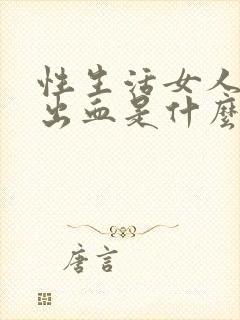 性生活女人
出血是什麼
唐言